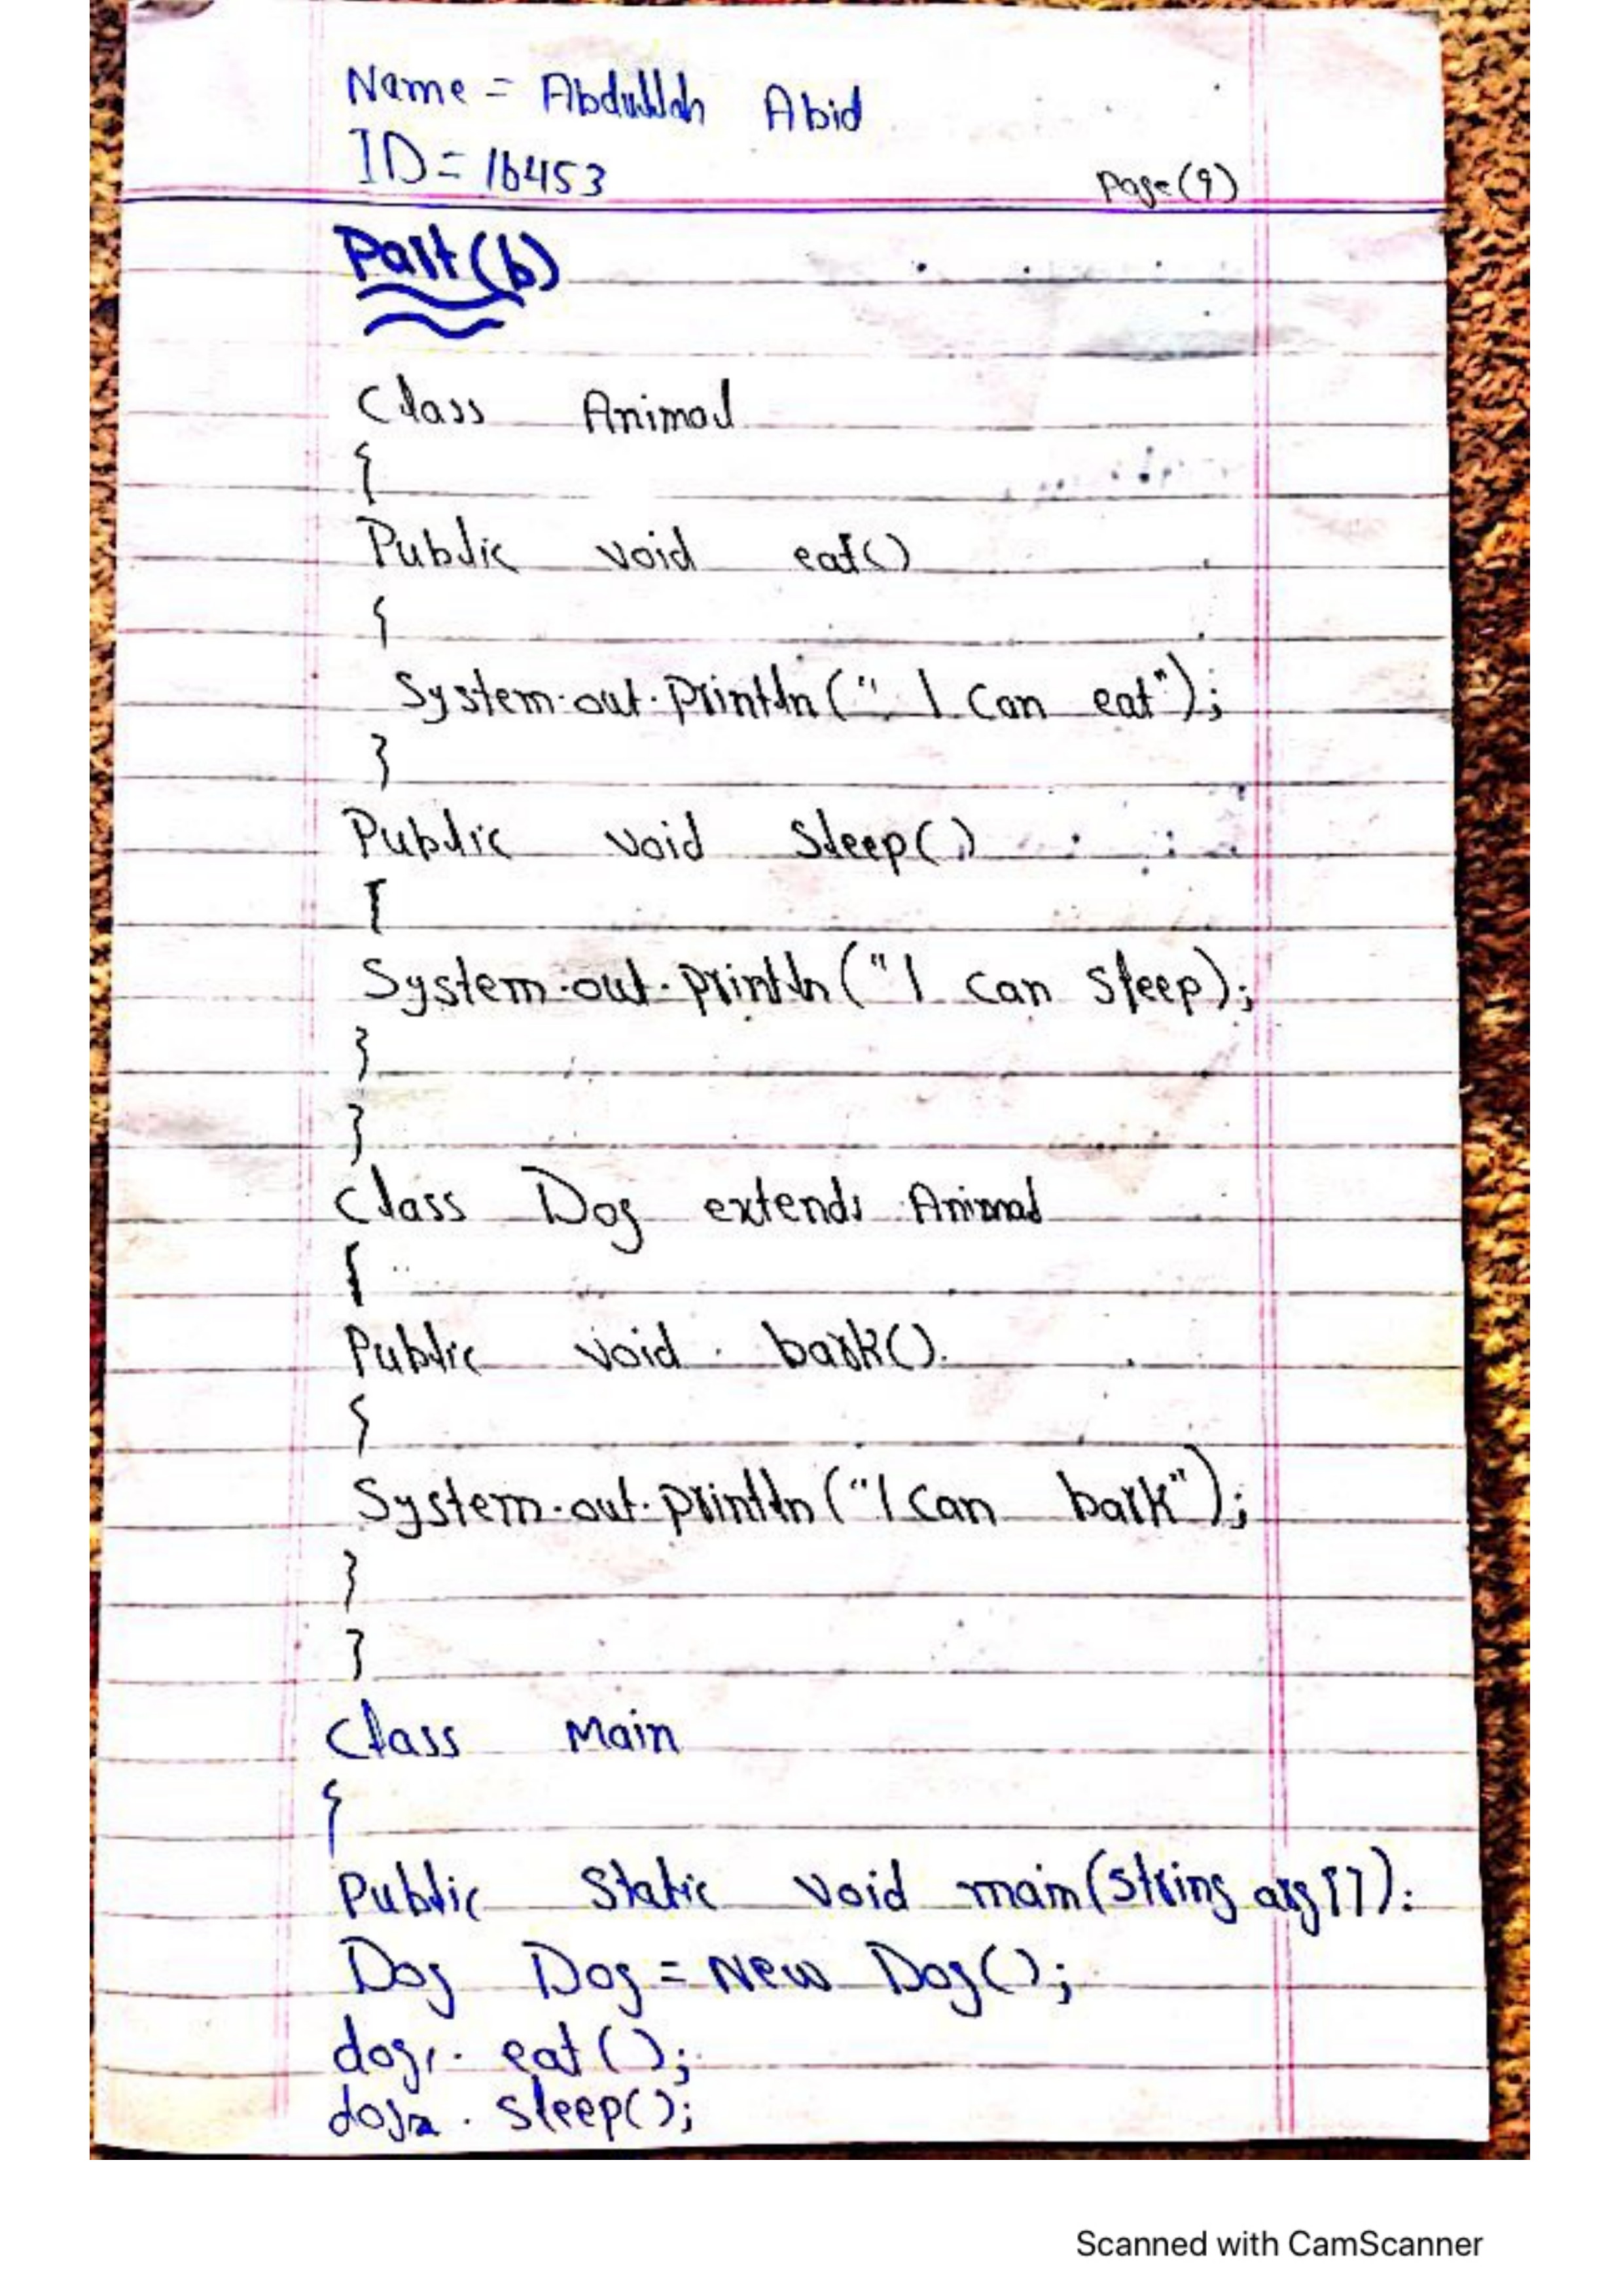 Name = Abdullah Abid
ID = 16453
Page(9)
Part(b)
Class Animal
{
Public void eat()
{
System.out.println(" I Can eat");
}
Public void Sleep()
{
System.out.println("I can Sleep);
}
}
Class Dog extends Animal
{
Public void bark()
{
System.out.println("I can bark");
}
}
Class Main
{
Public Static void main(String arg[]):
Dog Dog = New Dog();
dog1. eat();
dog2. Sleep();
Scanned with CamScanner